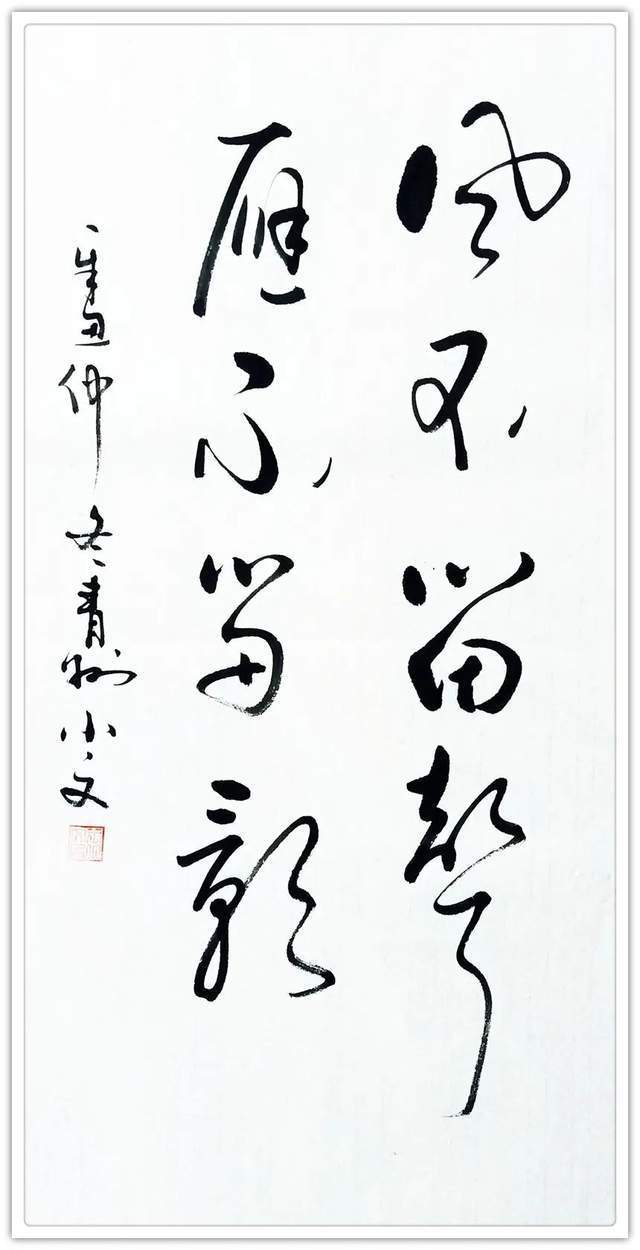 風不留聲
雁不留影
辛丑仲冬青州小文